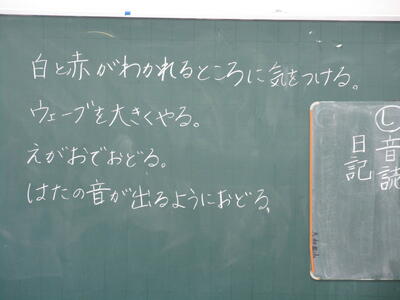 白と赤がわかれるところに気をつける。
ウェーブを大きくやる。
えがおでおどる。
はたの音が出るようにおどる、
し
音誌
日記